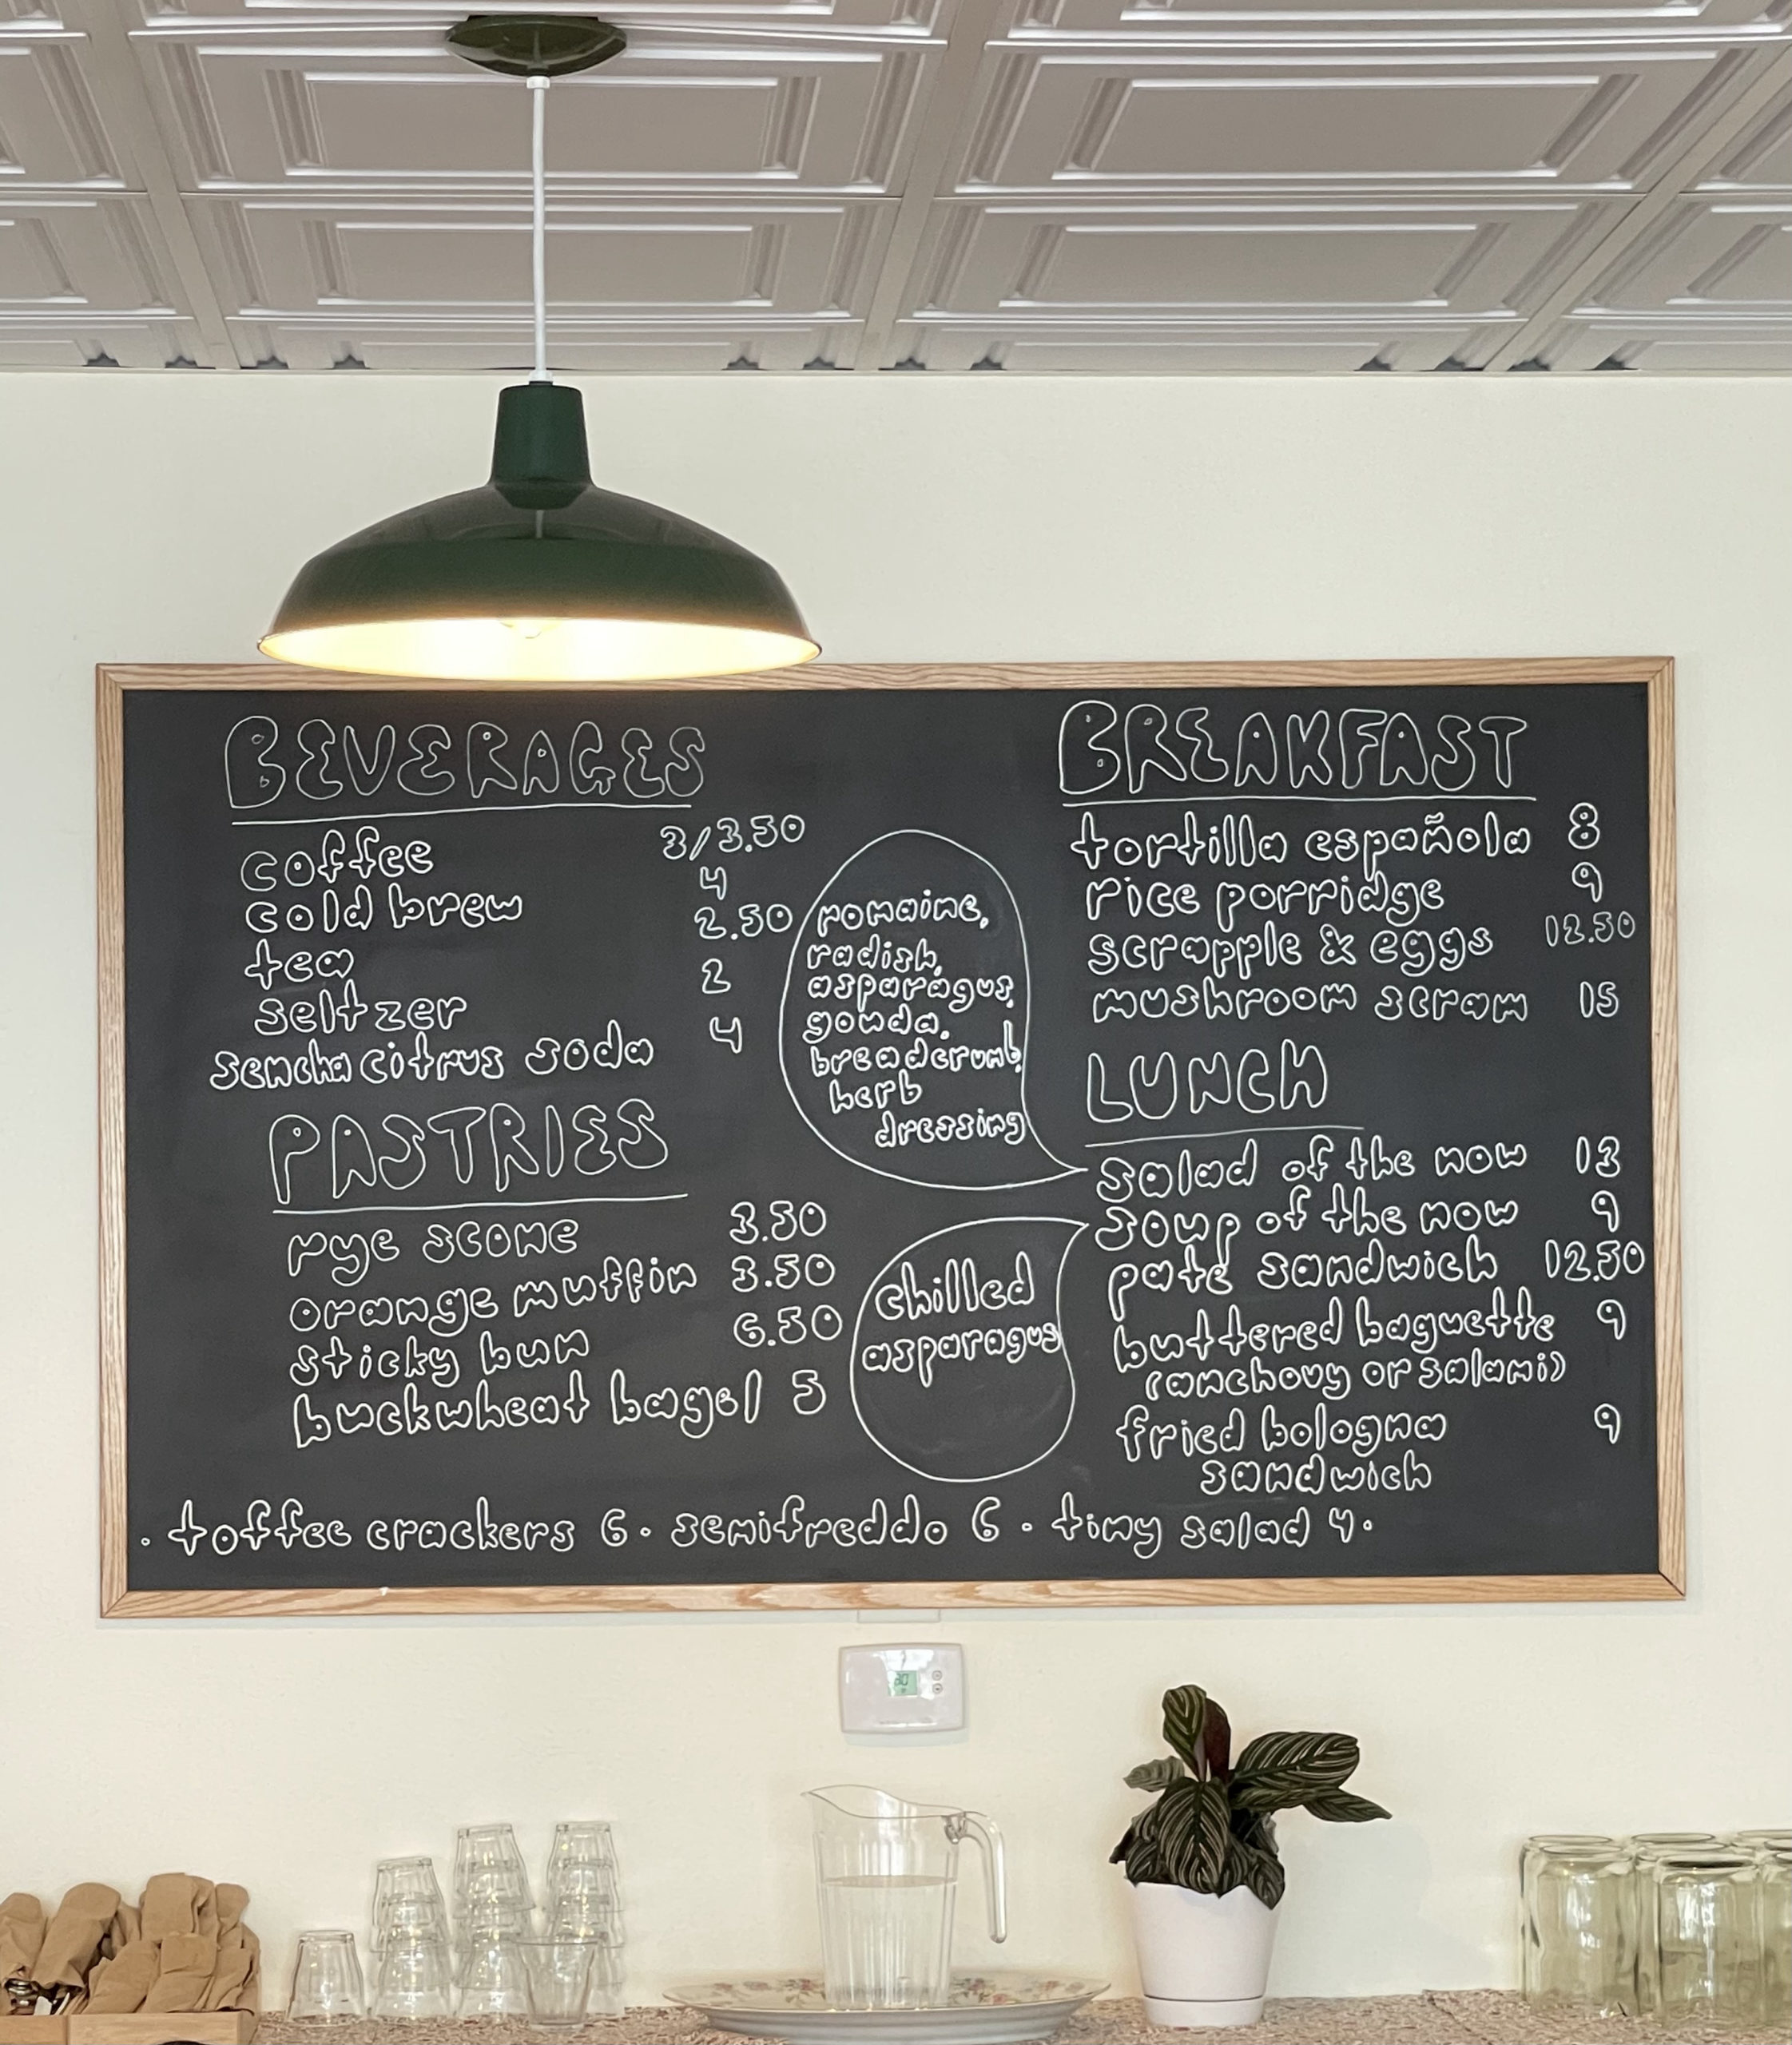 BEVERAGES
coffee 3/3.50
cold brew 4
tea 2.50
seltzer 2
sencha citrus soda 4
PASTRIES
rye scone 3.50
orange muffin 3.50
sticky bun 6.50
buckwheat bagel 5
romaine,
radish,
asparagus,
gouda,
breadcrumb,
herb
dressing
chilled
asparagus
BREAKFAST
tortilla española 8
rice porridge 9
scrapple & eggs 12.50
mushroom scram 15
LUNCH
salad of the now 13
soup of the now 9
paté sandwich 12.50
buttered baguette 9
(anchovy or salami)
fried bologna 9
sandwich
· toffee crackers 6 · semifreddo 6 · tiny salad 4 ·
80